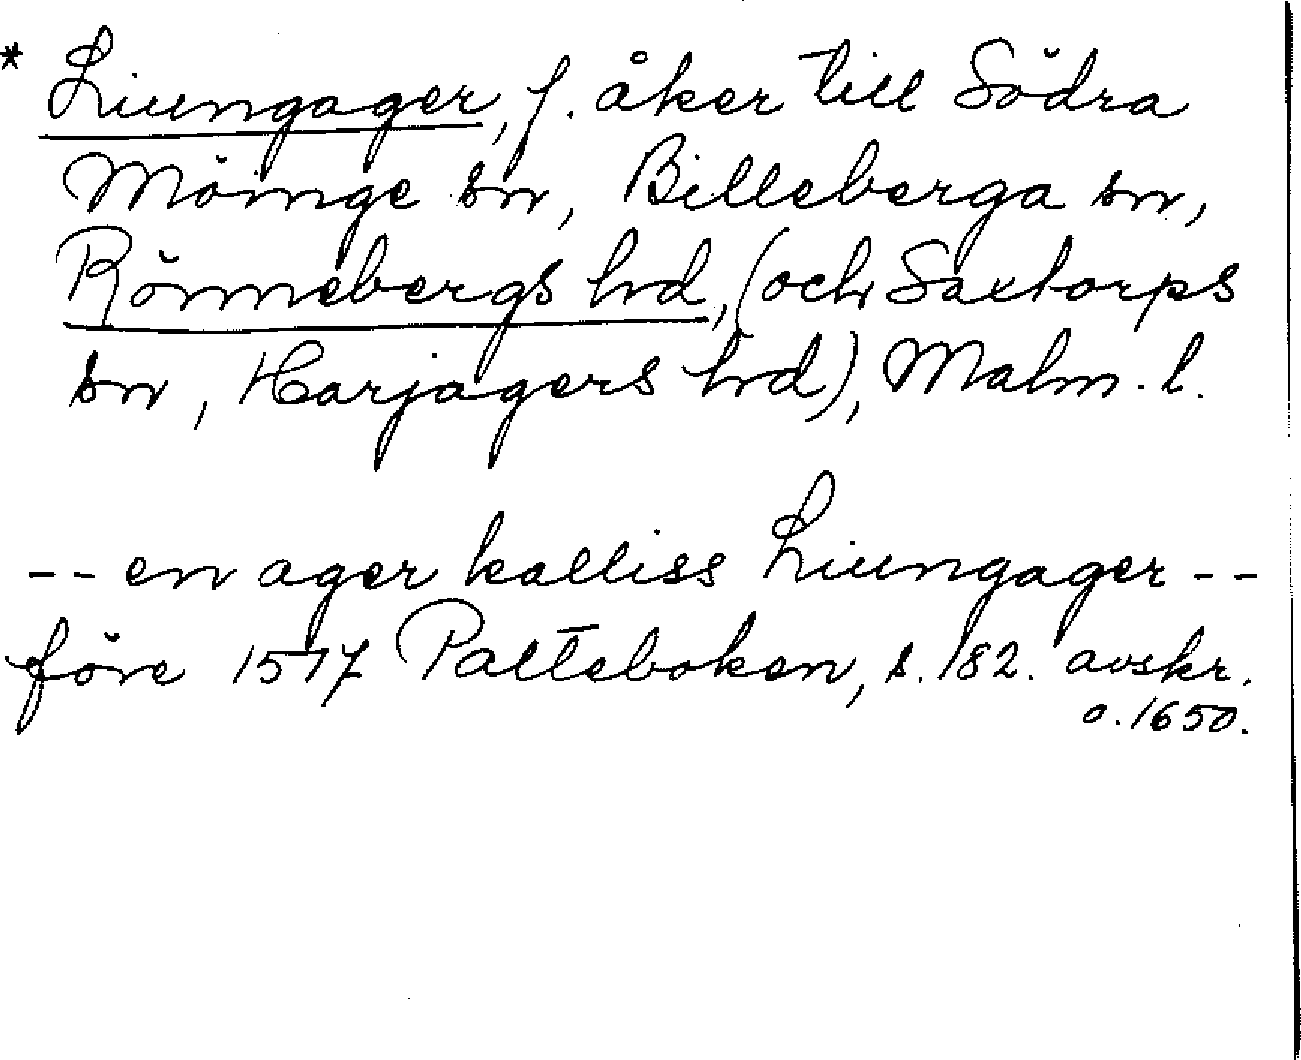 * Liungager, f. åker till Södra
Möinge sn, Billeberga sn,
Rönnebergs hrd, (och Saxtorps
sn, Harjagers hrd), Malm. l.
-- en ager kalliss Liungager --
före 1577 Palteboken, s. 182. avskr.
o. 1650.